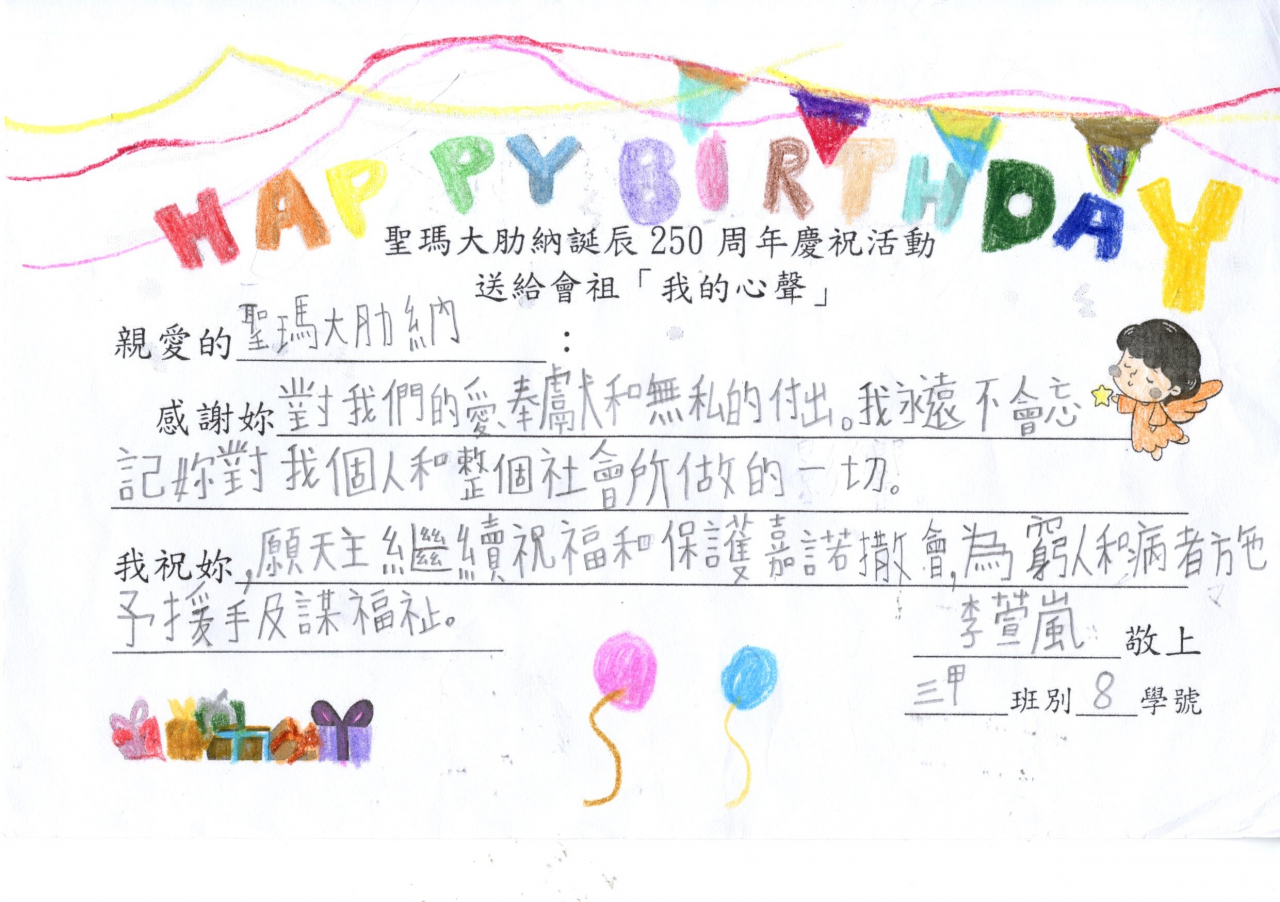 HAPPY BIRTHDAY
聖瑪大肋納誕辰 250 周年慶祝活動
送給會祖「我的心聲」
親愛的聖瑪大肋納：
感謝妳對我們的愛、奉獻和無私的付出。我永遠不會忘
記妳對我個人和整個社會所做的一切。
我祝妳，願天主繼續祝福和保護嘉諾撒會，為窮人和病者施
予援手及謀福祉。
李萱嵐 敬上
三甲 班別 8 學號